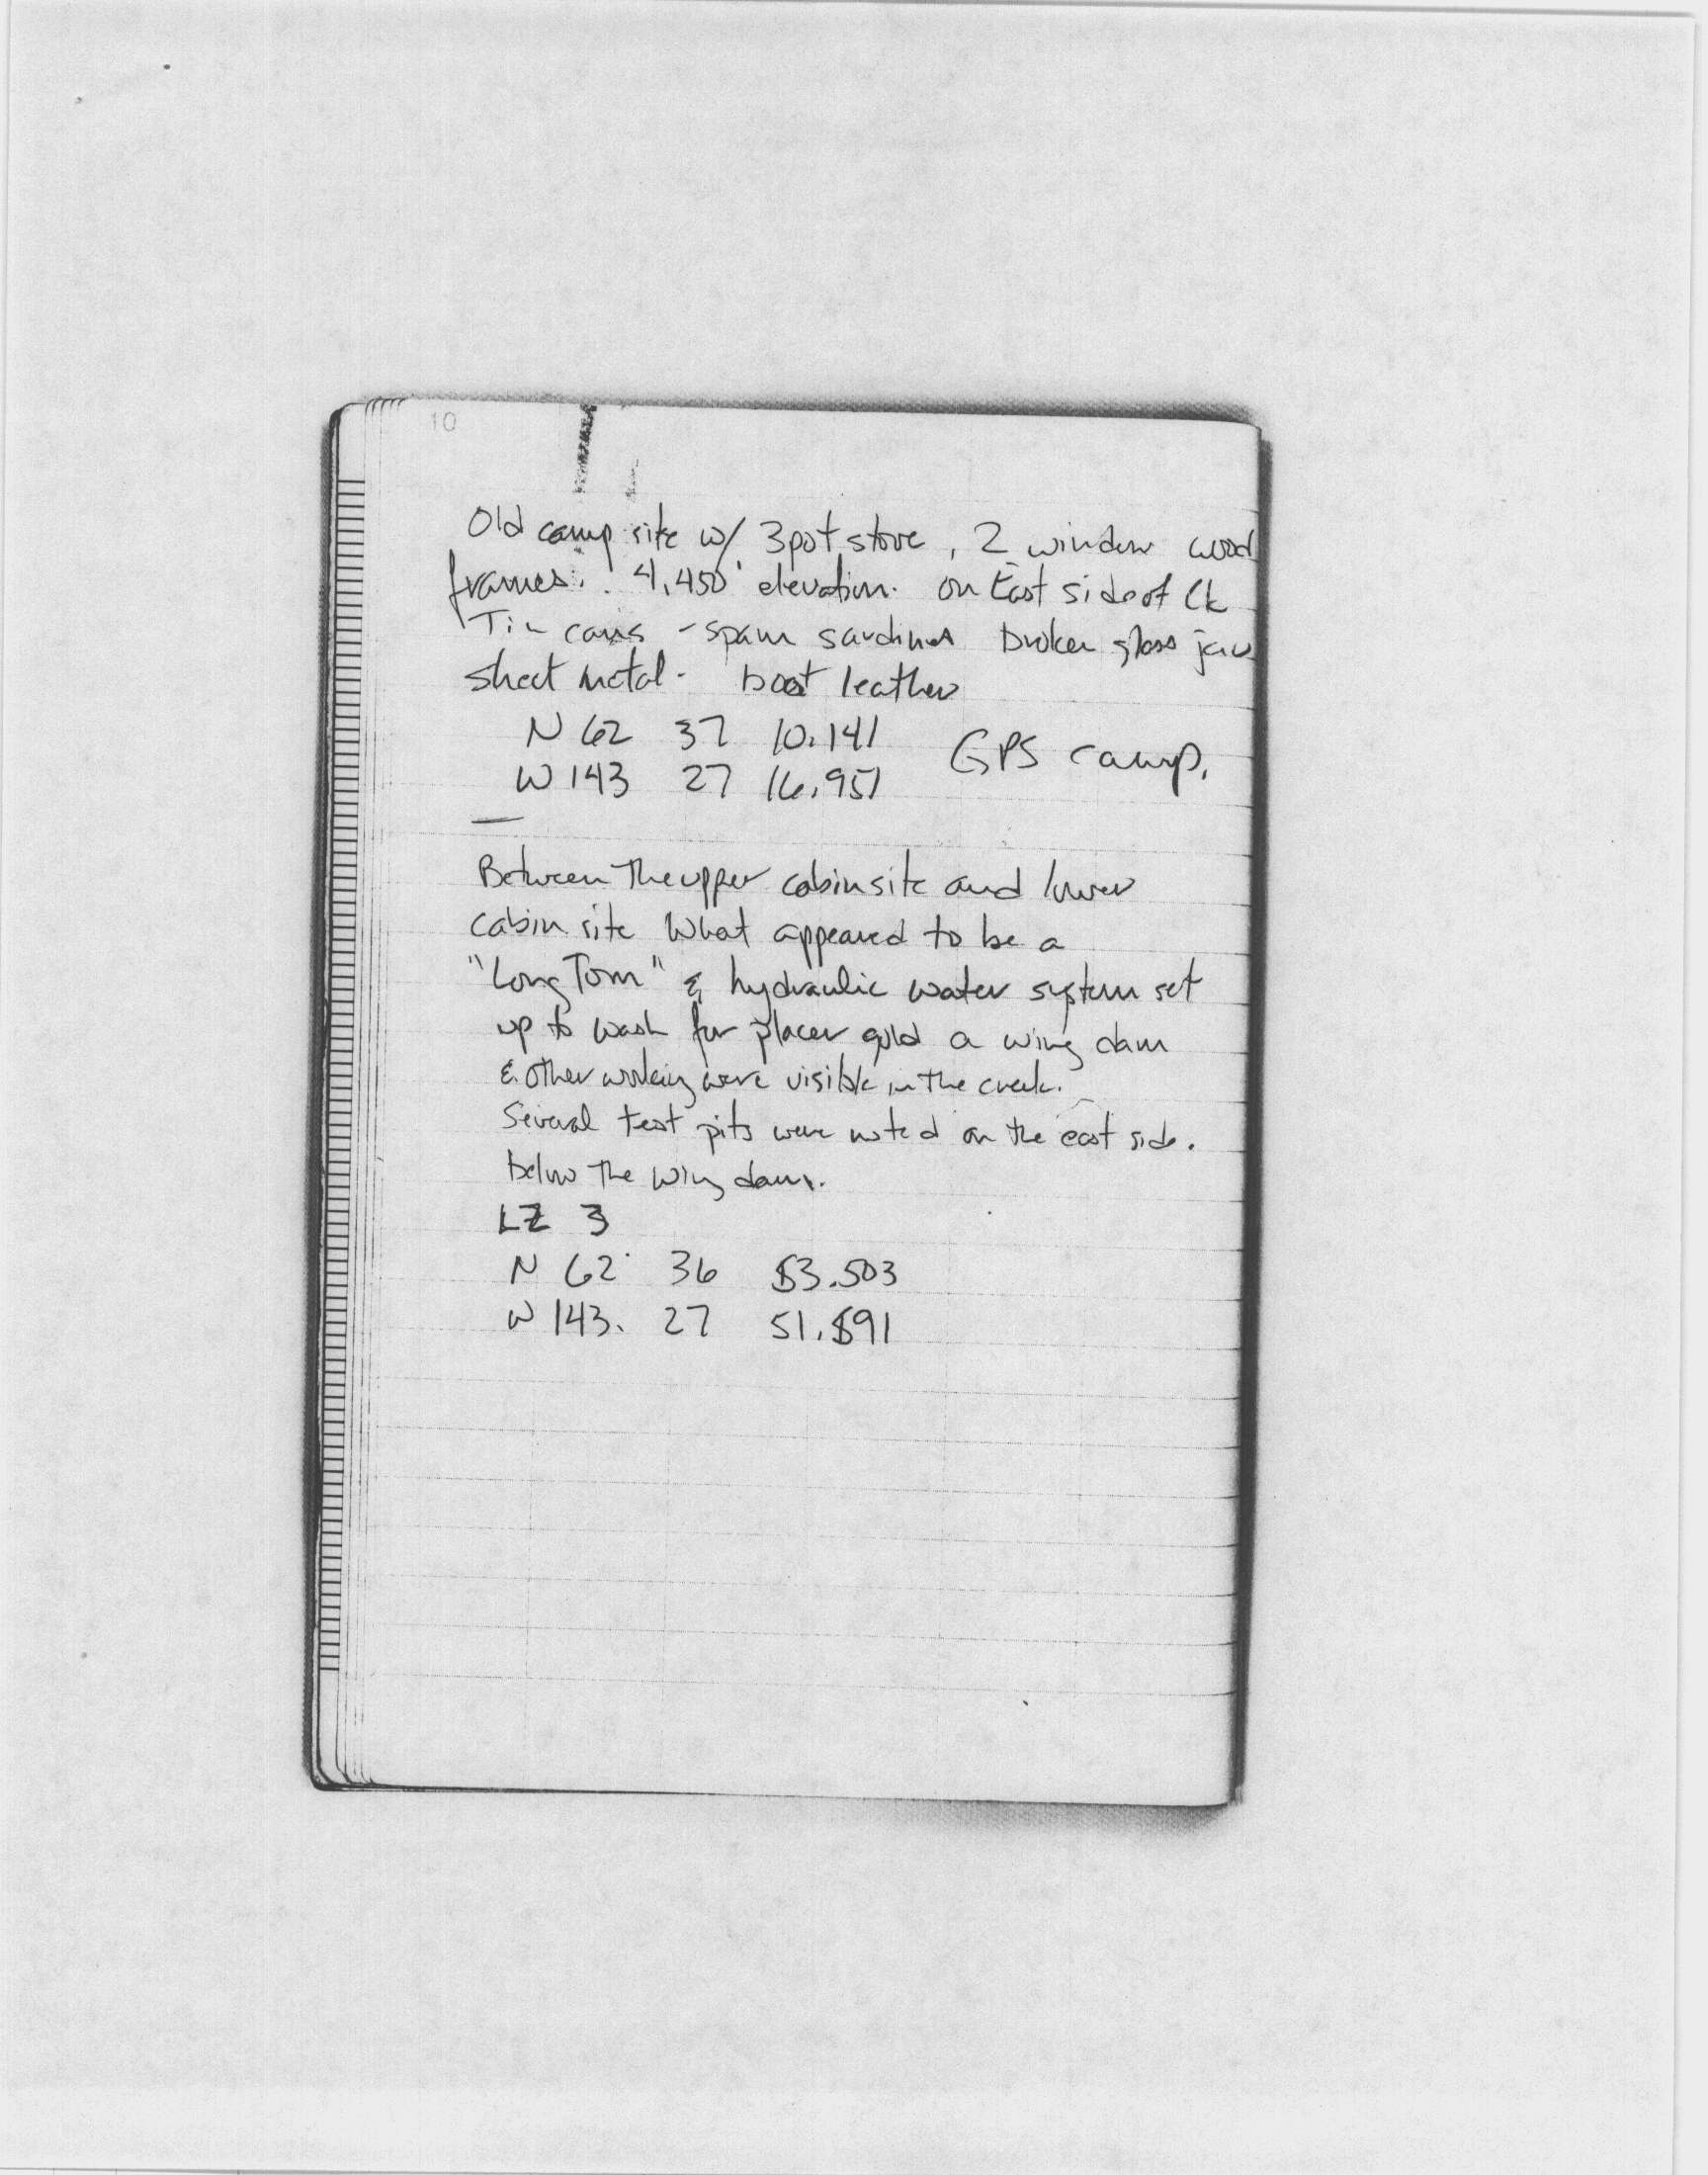 10
Old camp site w/ 3pot stove, 2 window wood
frames. 4,450' elevation. on East side of Ck
Tin cans - spam sardines broken glass jars
sheet metal - boot leather
N 62 37 10.141
GPS camp.
W 143 27 16.951
Between The upper cabin site and lower
cabin site What appeared to be a
"Long Tom" & hydraulic water system set
up to wash for placer gold a wing dam
& other working were visible in the creek.
Several test pits were noted on the east side.
below The wing dam.
LZ 3
N 62 36 53.503
W 143. 27 51.891